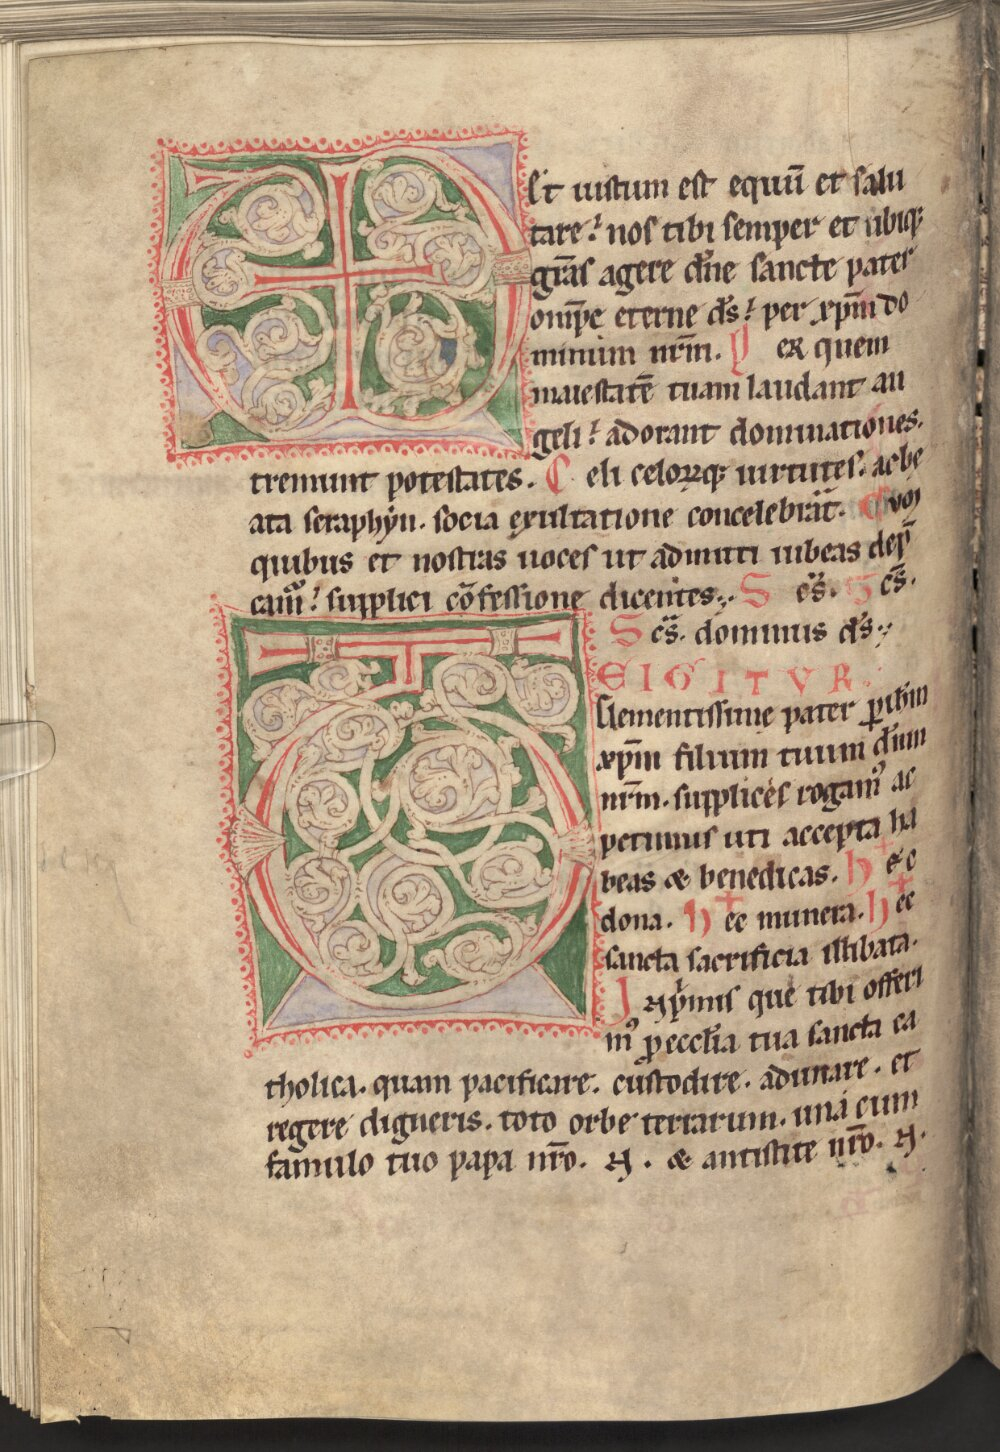 et iustum est equū et salu
tare? nos tibi semper et ubiq;
gr̄as agere dn̄e sancte pater
om̄ps eterne ds̄? per xp̄m do
minum nr̄m. P er quem
maiestatē tuam laudant an
geli? adorant dominationes.
tremunt potestates. C eli celorꝝq; uirtutes. ac be
ata seraphyn. socia exultatione concelebrāt. C um
quibus et nostras uoces ut admitti iubeas dep̄
cam̄? supplici cōfessione dicentes. S cs̄. S cs̄.
S cs̄. dominus ds̄.
E IGITVR
Clementissime pater p ihm̄
xp̄m filium tuum dn̄m
nr̄m. supplices rogam᾽ ac
petimus uti accepta ha
beas & benedicas. h+ ec
dona. h+ ec munera. h+ ec
sancta sacrificia illibata.
I np̄mis que tibi offeri
m᾽ p ecclīa tua sancta ca
tholica. quam pacificare. custodire. adunare. et
regere digneris. toto orbe terrarum. una cum
famulo tuo papa nr̄o. N. & antistite nr̄o. N.